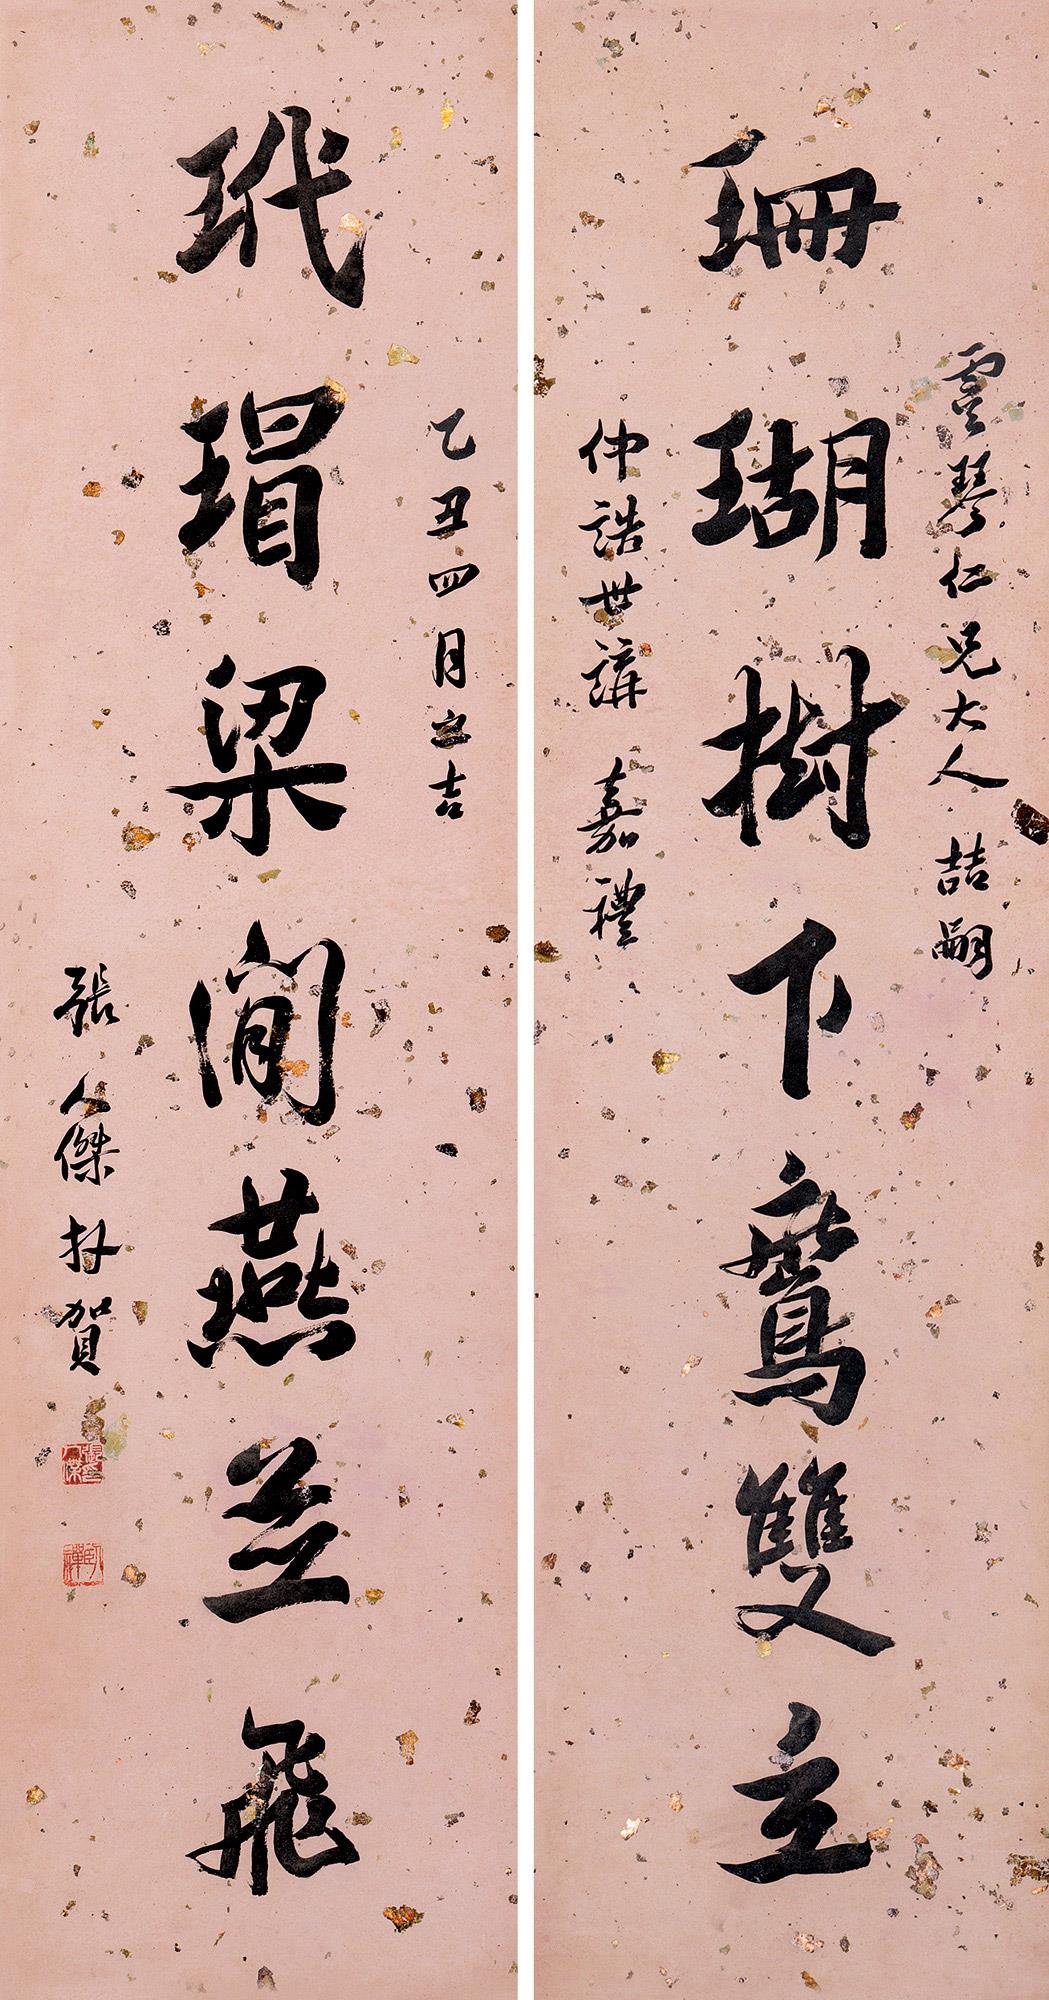 珊瑚樹下鸞雙立
雲琴仁兄大人 喆嗣
仲誥世講 嘉禮
玳瑁梁間燕並飛
乙丑四月之吉
張人傑拜賀
張人傑
臥禪